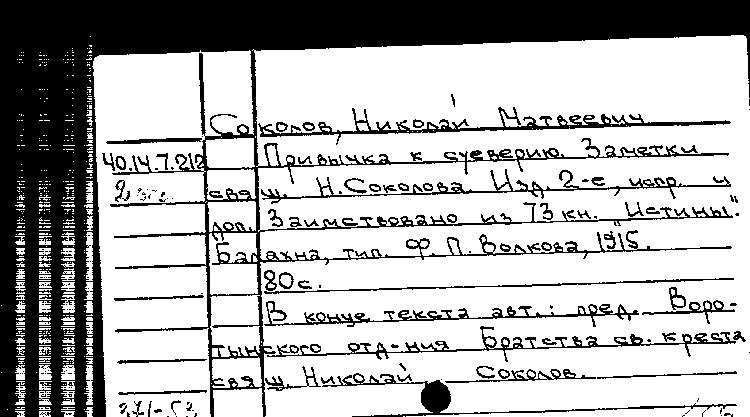 Соколов, Николай Матвеевич
40.14.7.212 Привычка к суеверию. Заметки
2 экз. свящ. Н. Соколова. Изд. 2-е, испр. и
доп. Заимствовано из 73 кн. "Истины".
Балахна, тип. Ф. П. Волкова, 1915.
80 с.
В конце текста авт.: пред. Воро-
тынского отд-ния Братства св. креста
свящ. Николай Соколов.